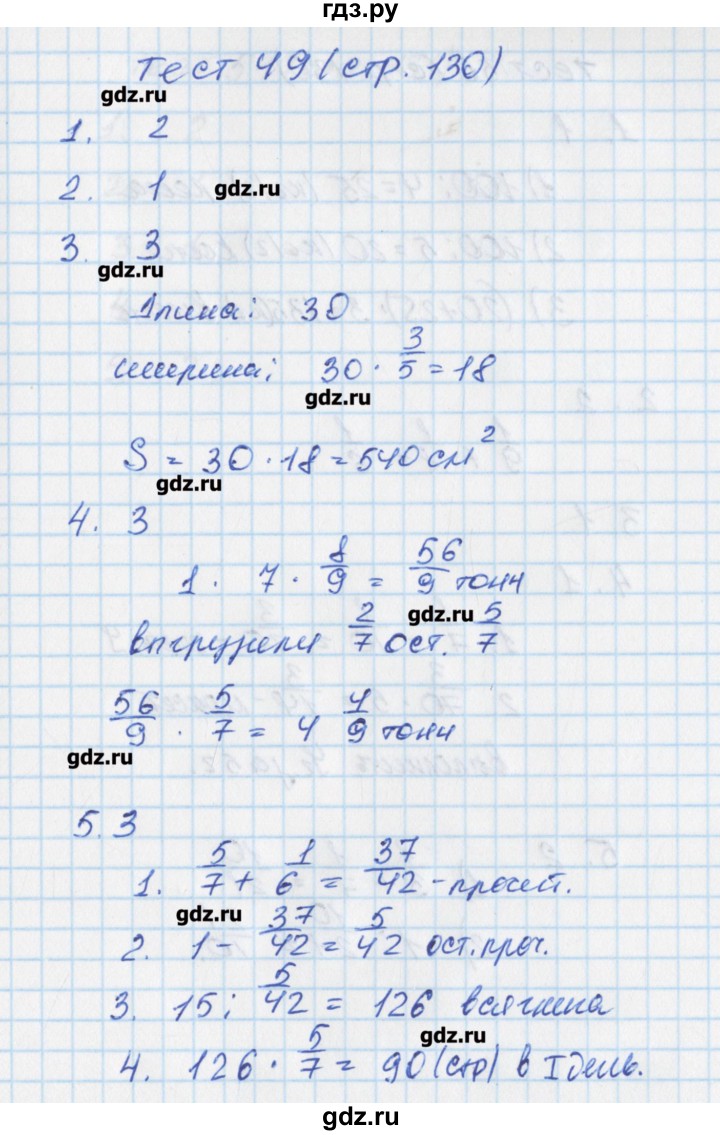 гдз.ру
Тест 49 (стр. 130)
gdz.ru
1. 2
2. 1 gdz.ru
3. 3
gdz.ru
Длина: 30
ширина: 30 · 3/5 = 18
gdz.ru
S = 30 · 18 = 540 см²
gdz.ru
4. 3
1. 7 · 8/9 = 56/9 тонн
gdz.ru
выгрузили 2/7 ост. 5/7
56/9 · 5/7 = 4 4/9 тонн
gdz.ru
5. 3
1. 5/7 + 1/6 = 37/42 - прочит.
gdz.ru
2. 1 - 37/42 = 5/42 ост. проч.
3. 15 : 5/42 = 126 вся книга
gdz.ru
4. 126 · 5/7 = 90 (стр) в I день.
gdz.ru